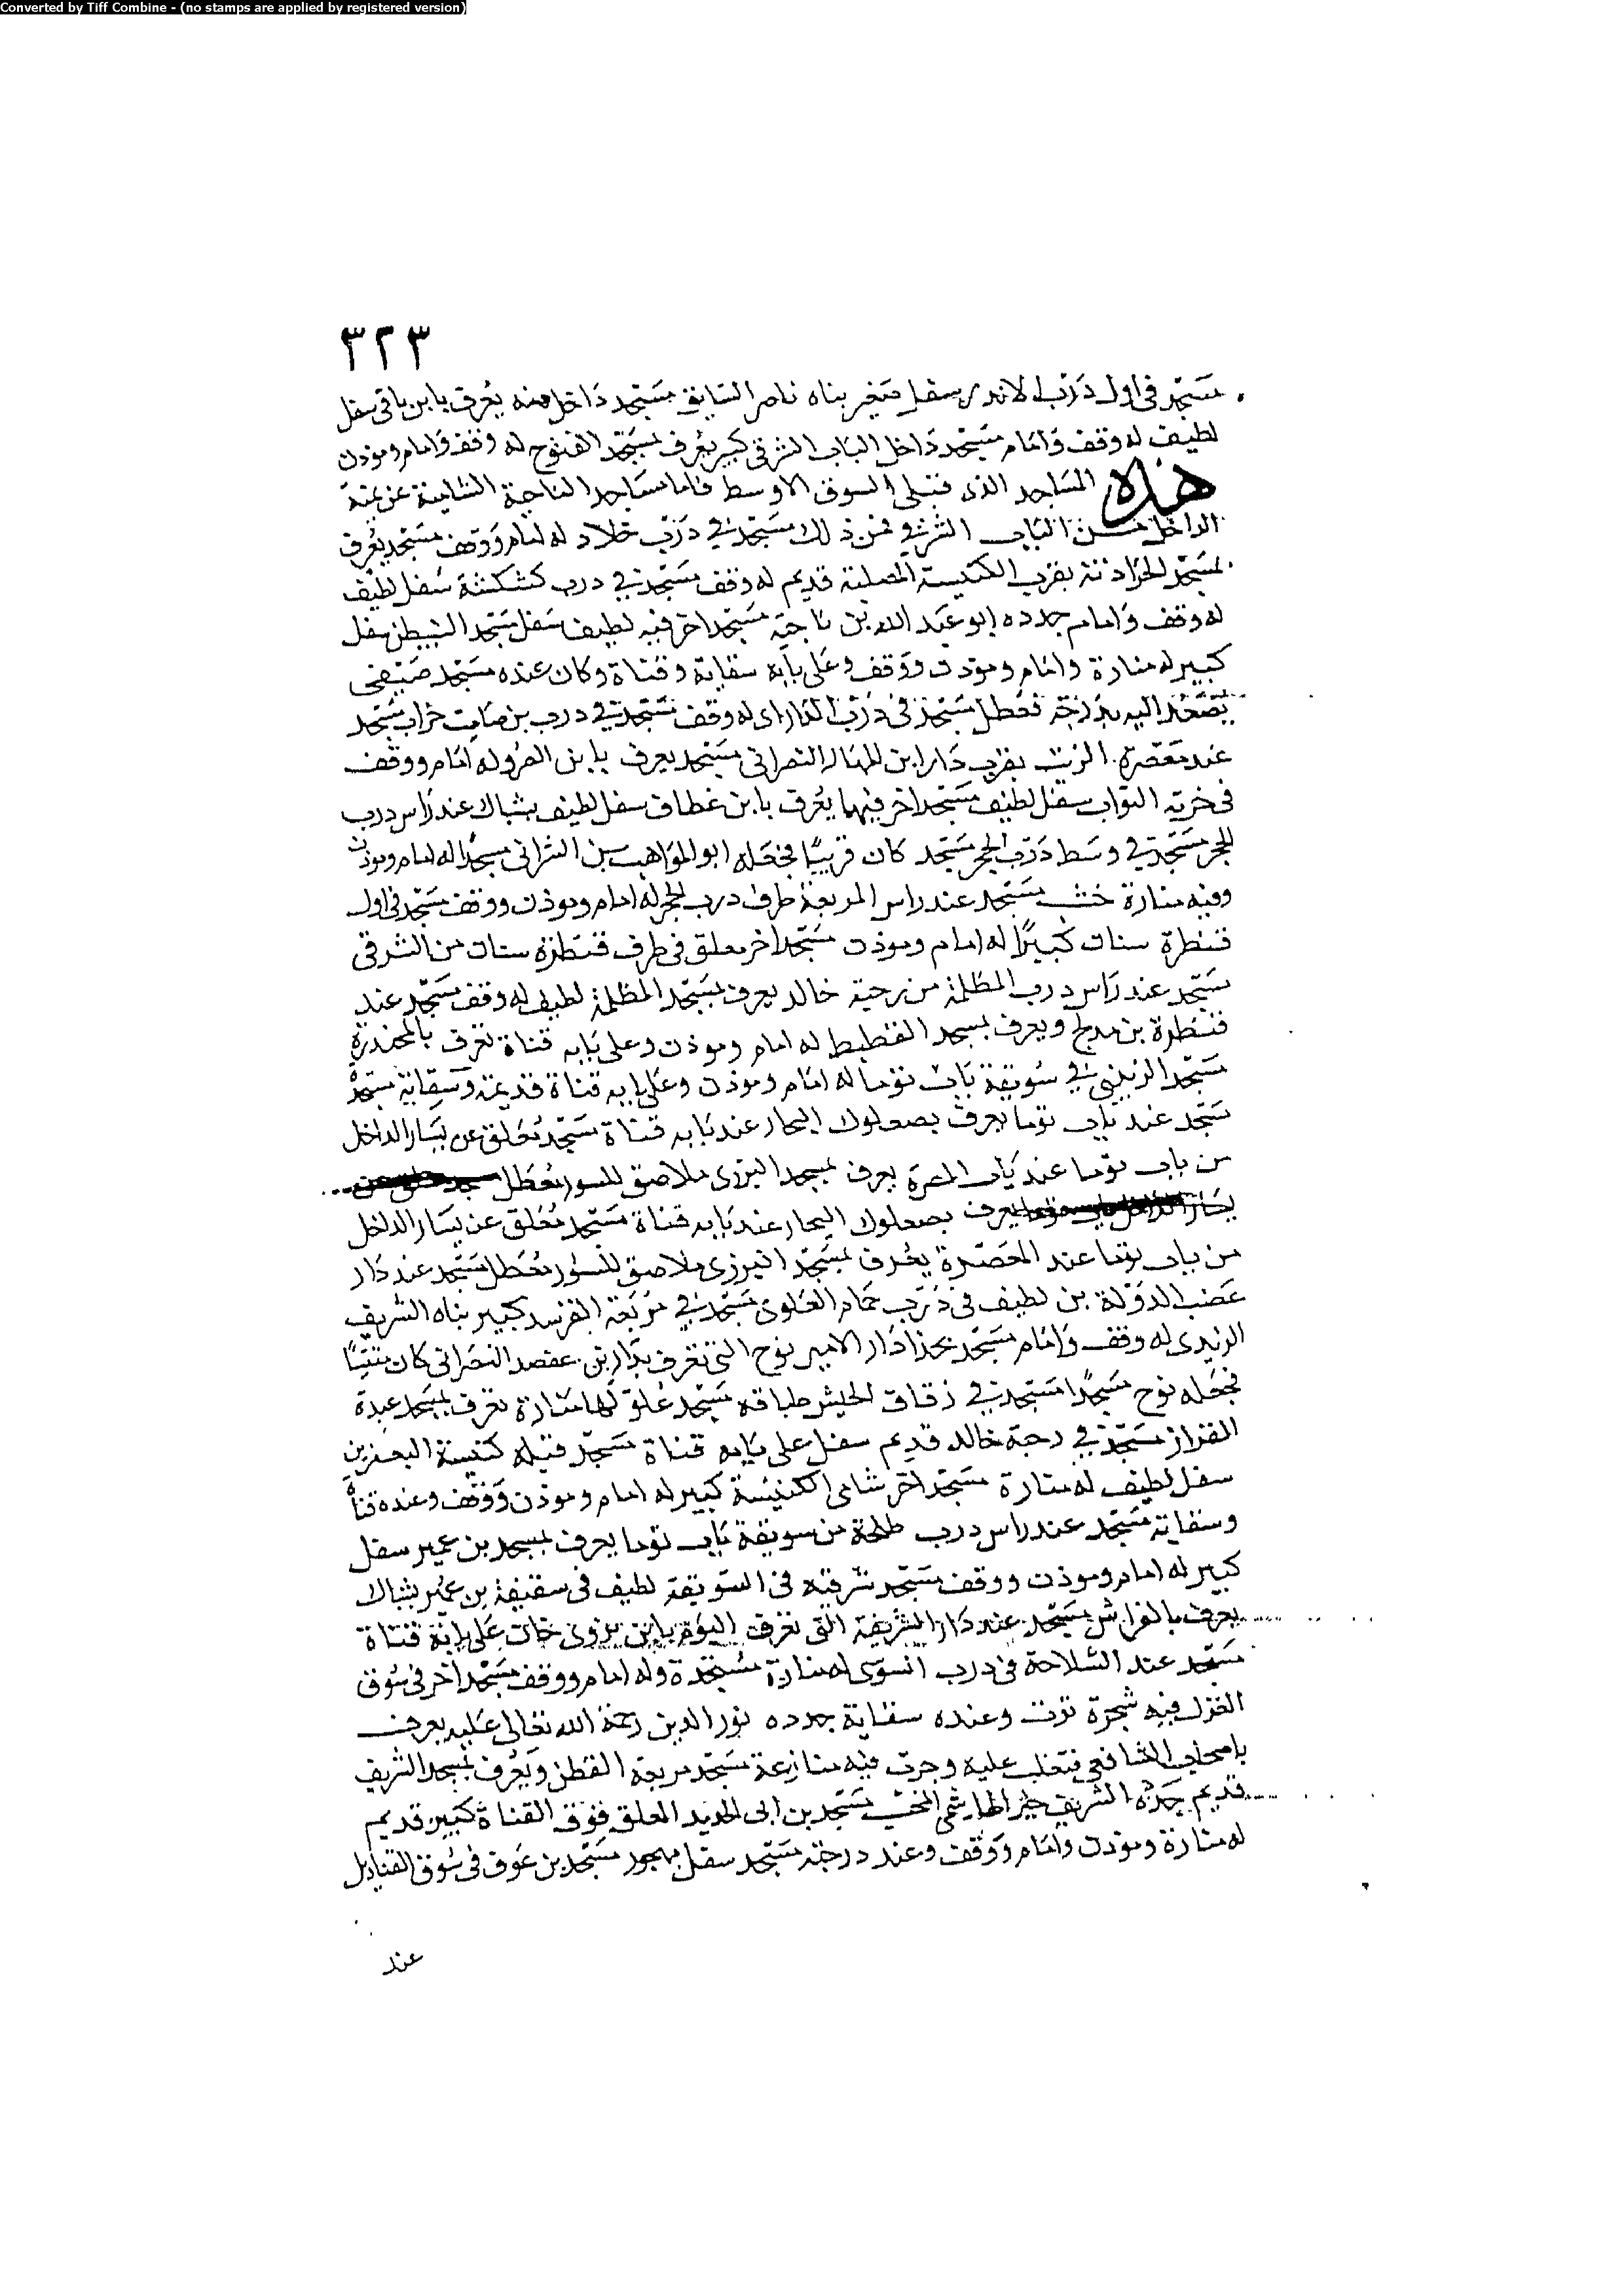 Converted by Tiff Combine - (no stamps are applied by registered version)
٣٢٣
مسجد في اول درب سفل صغير بناه ناصر السايق مسجد داخل منه يعرف بابن باقي سفل
لطيف له وقف وامام مسجد داخل الباب الشرقي كبير يعرف بمسجد الفتوح له وقف وامام وموذن
هذه المساجد الذي قبلي السوق الاوسط فاما مساجد الناحية الشامية عن يمنة
الداخل من الباب الشرقي فمن ذلك مسجد في درب خلاد له امام ووقف مسجد يعرف
بمسجد بقرب الكنيسة المصلبة قديم له وقف مسجد في درب كشكشة سفل لطيف
له وقف وامام جدده ابو عبد الله بن ناجية مسجد اخر فيه لطيف سفل مسجد سفل
كبير له منارة وامام وموذن ووقف وعلى بابه سقاية وقناة وكان عنده مسجد صيفي
يصعد اليه بدرجة فعطل مسجد في درب له وقف مسجد في درب بن صامت خراب مسجد
عند معصرة الزيت بقرب دار ابن النصراني مسجد يعرف بابن له امام ووقف
في خربة البواب سفل لطيف مسجد اخر فيها يعرف بابن عطاف سفل لطيف بشباك عند راس درب
الحجر مسجد في وسط درب الحجر مسجد كان قريبا فجعله ابو المواهب بن مسجدا له امام وموذن
وفيه منارة خشب مسجد عند راس المربعة طرف درب الحجر له امام وموذن ووقف مسجد في اول
قنطرة سنان كبيرا له امام وموذن مسجد اخر معلق في طرف قنطرة سنان من الشرقي
مسجد عند راس درب المظلمة من رحبة خالد يعرف بمسجد المظلمة لطيف له وقف مسجد عند
قنطرة بن مدلج ويعرف بمسجد القطيط له امام وموذن وعلى بابه قناة تعرف
مسجد الزينبي في سويقة باب توما له امام وموذن وعلى بابه قناة قديمة وسقاية مسجد
مسجد عند باب توما يعرف بصعلوك البحار عند بابه قناة مسجد معلق عن يسار الداخل
من باب توما عند باب يعرف بمسجد اليرزي ملاصق للسور معطل
يعرف بصعلوك البحار عند بابه قناة مسجد معلق عن يسار الداخل
من باب توما عند المعصرة يعرف بمسجد اليرزي ملاصق للسور معطل مسجد عند دار
عضب الدولة بن لطيف في درب حمام العلوي مسجد في مربعة كبير بناه الشريف
الزيدي له وقف وامام مسجد بحذا دار الامير نوح التي تعرف بدار بن النصراني كان
فجعله نوح مسجدا مسجد في زقاق الحيش طباقه مسجد علو لها منارة تعرف بمسجد عبدة
القزاز مسجد في رحبة خالد قديم سفل على بابه قناة مسجد قبلة كنيسة
سفل لطيف له منارة مسجد اخر شامي الكنيسة كبير له امام وموذن ووقف وعنده قناة
وسقاية مسجد عند راس درب طلحة من سويقة باب توما يعرف بمسجد بن عمير سفل
كبير له امام وموذن ووقف مسجد شرقيه في السويقة لطيف في سقيفة بن عمير بشباك
يعرف بالفراش مسجد عند دار الشريفة التي تعرف اليوم بابن على بابه قناة
مسجد عند السلاحة في درب له منارة مستجدة وله امام ووقف مسجد اخر في سوق
الغزل فيه شجرة توت وعنده سقاية جدده نور الدين رحمة الله تعالى عليه يعرف
باصحاب الشافعي فتغلب عليه وجرت فيه منازعة مسجد مربعة القطن ويعرف بمسجد الشريف
قديم جدده الشريف مسجد بن ابي الحديد المعلق فوق القناة كبير قديم
له منارة وموذن وامام ووقف وعند درجته مسجد سفل مهجور مسجد بن عوف في سوق القناديل
عند